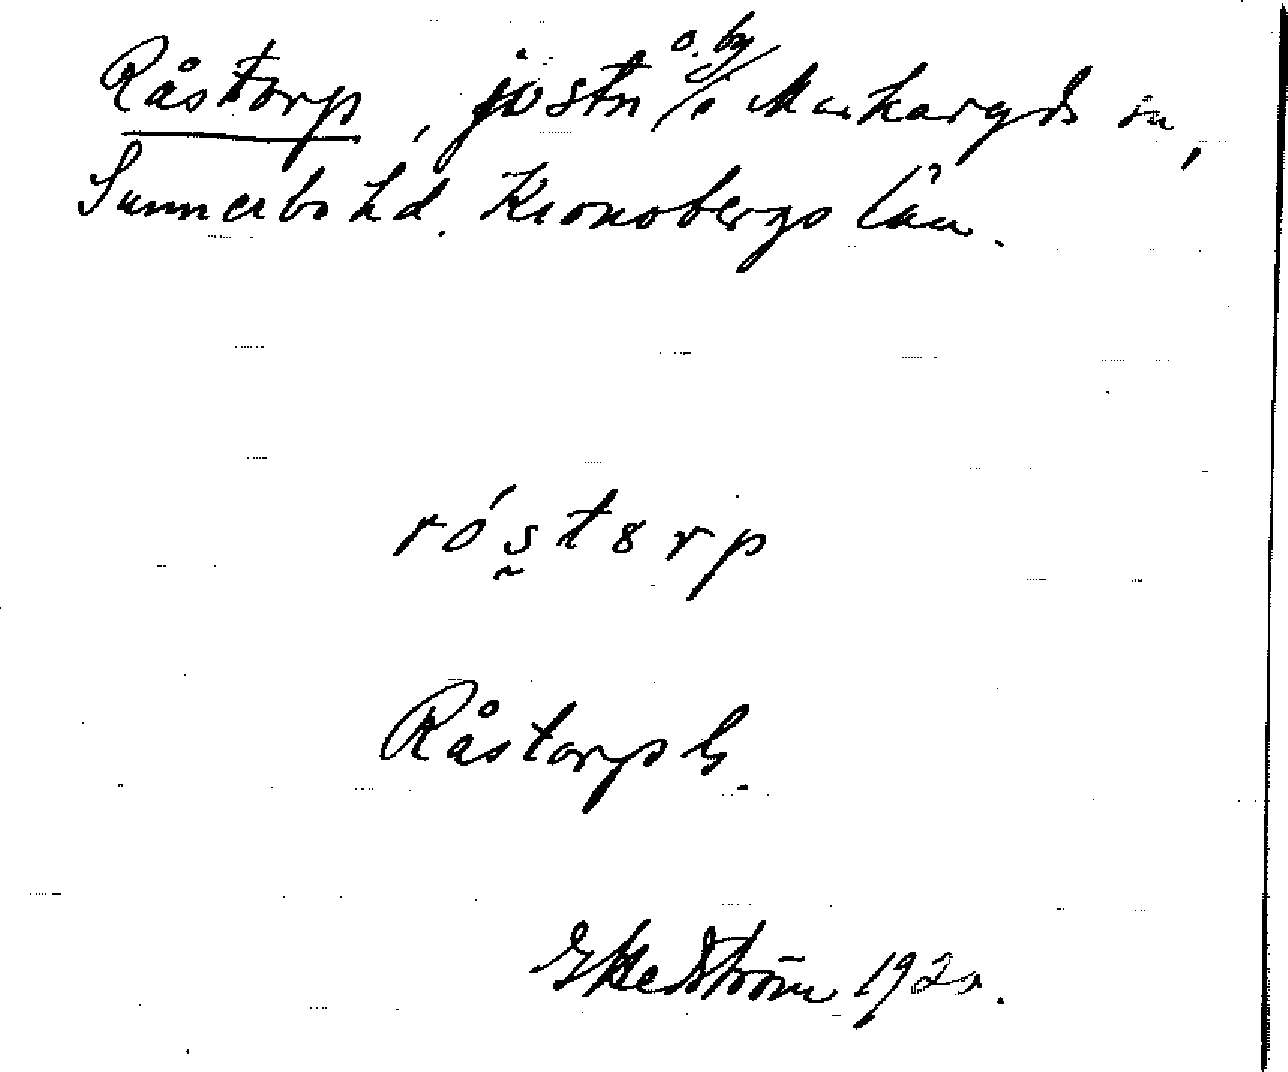 Råstorp, jvstn o. by i Markaryds sn,
Sunnerbo hd. Kronobergs län.
róstorp
Råstorp G.
Ekedström 1920.